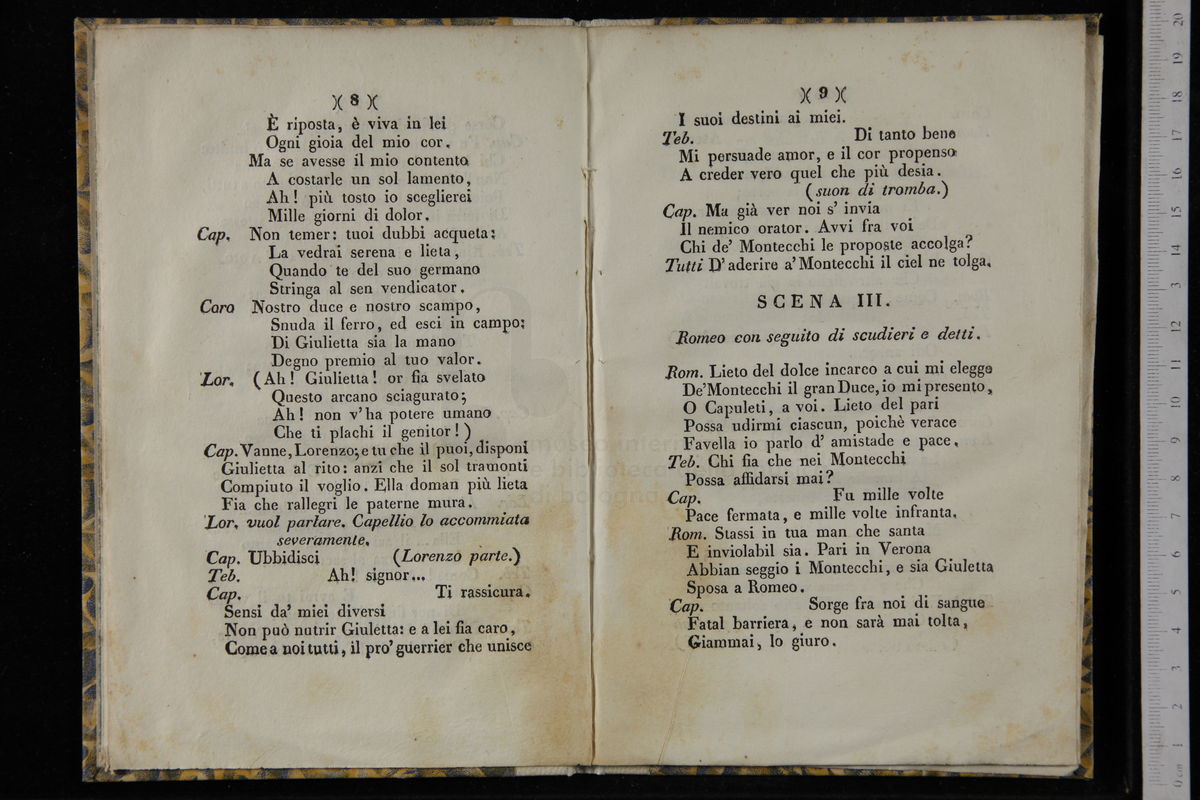 )( 8 )(
È riposta, è viva in lei
Ogni gioia del mio cor.
Ma se avesse il mio contento
A costarle un sol lamento,
Ah! più tosto io sceglierei
Mille giorni di dolor.
Cap. Non temer: tuoi dubbi acqueta:
La vedrai serena e lieta,
Quando te del suo germano
Stringa al sen vendicator.
Coro Nostro duce e nostro scampo,
Snuda il ferro, ed esci in campo;
Di Giulietta sia la mano
Degno premio al tuo valor.
Lor. (Ah! Giulietta! or fia svelato
Questo arcano sciagurato;
Ah! non v'ha potere umano
Che ti plachi il genitor!)
Cap. Vanne, Lorenzo; e tu che il puoi, disponi
Giulietta al rito: anzi che il sol tramonti
Compiuto il voglio. Ella doman più lieta
Fia che rallegri le paterne mura.
Lor. vuol parlare. Capellio lo accommiata
severamente.
Cap. Ubbidisci (Lorenzo parte.)
Teb. Ah! signor...
Cap. Ti rassicura.
Sensi da' miei diversi
Non può nutrir Giuletta: e a lei fia caro,
Come a noi tutti, il pro' guerrier che unisce
)( 9 )(
I suoi destini ai miei.
Teb. Di tanto bene
Mi persuade amor, e il cor propenso
A creder vero quel che più desia.
(suon di tromba.)
Cap. Ma già ver noi s' invia
Il nemico orator. Avvi fra voi
Chi de' Montecchi le proposte accolga?
Tutti D'aderire a' Montecchi il ciel ne tolga.
SCENA III.
Romeo con seguito di scudieri e detti.
Rom. Lieto del dolce incarco a cui mi elegge
De'Montecchi il gran Duce, io mi presento,
O Capuleti, a voi. Lieto del pari
Possa udirmi ciascun, poichè verace
Favella io parlo d' amistade e pace.
Teb. Chi fia che nei Montecchi
Possa affidarsi mai?
Cap. Fu mille volte
Pace fermata, e mille volte infranta.
Rom. Stassi in tua man che santa
E inviolabil sia. Pari in Verona
Abbian seggio i Montecchi, e sia Giuletta
Sposa a Romeo.
Cap. Sorge fra noi di sangue
Fatal barriera, e non sarà mai tolta,
Giammai, lo giuro.